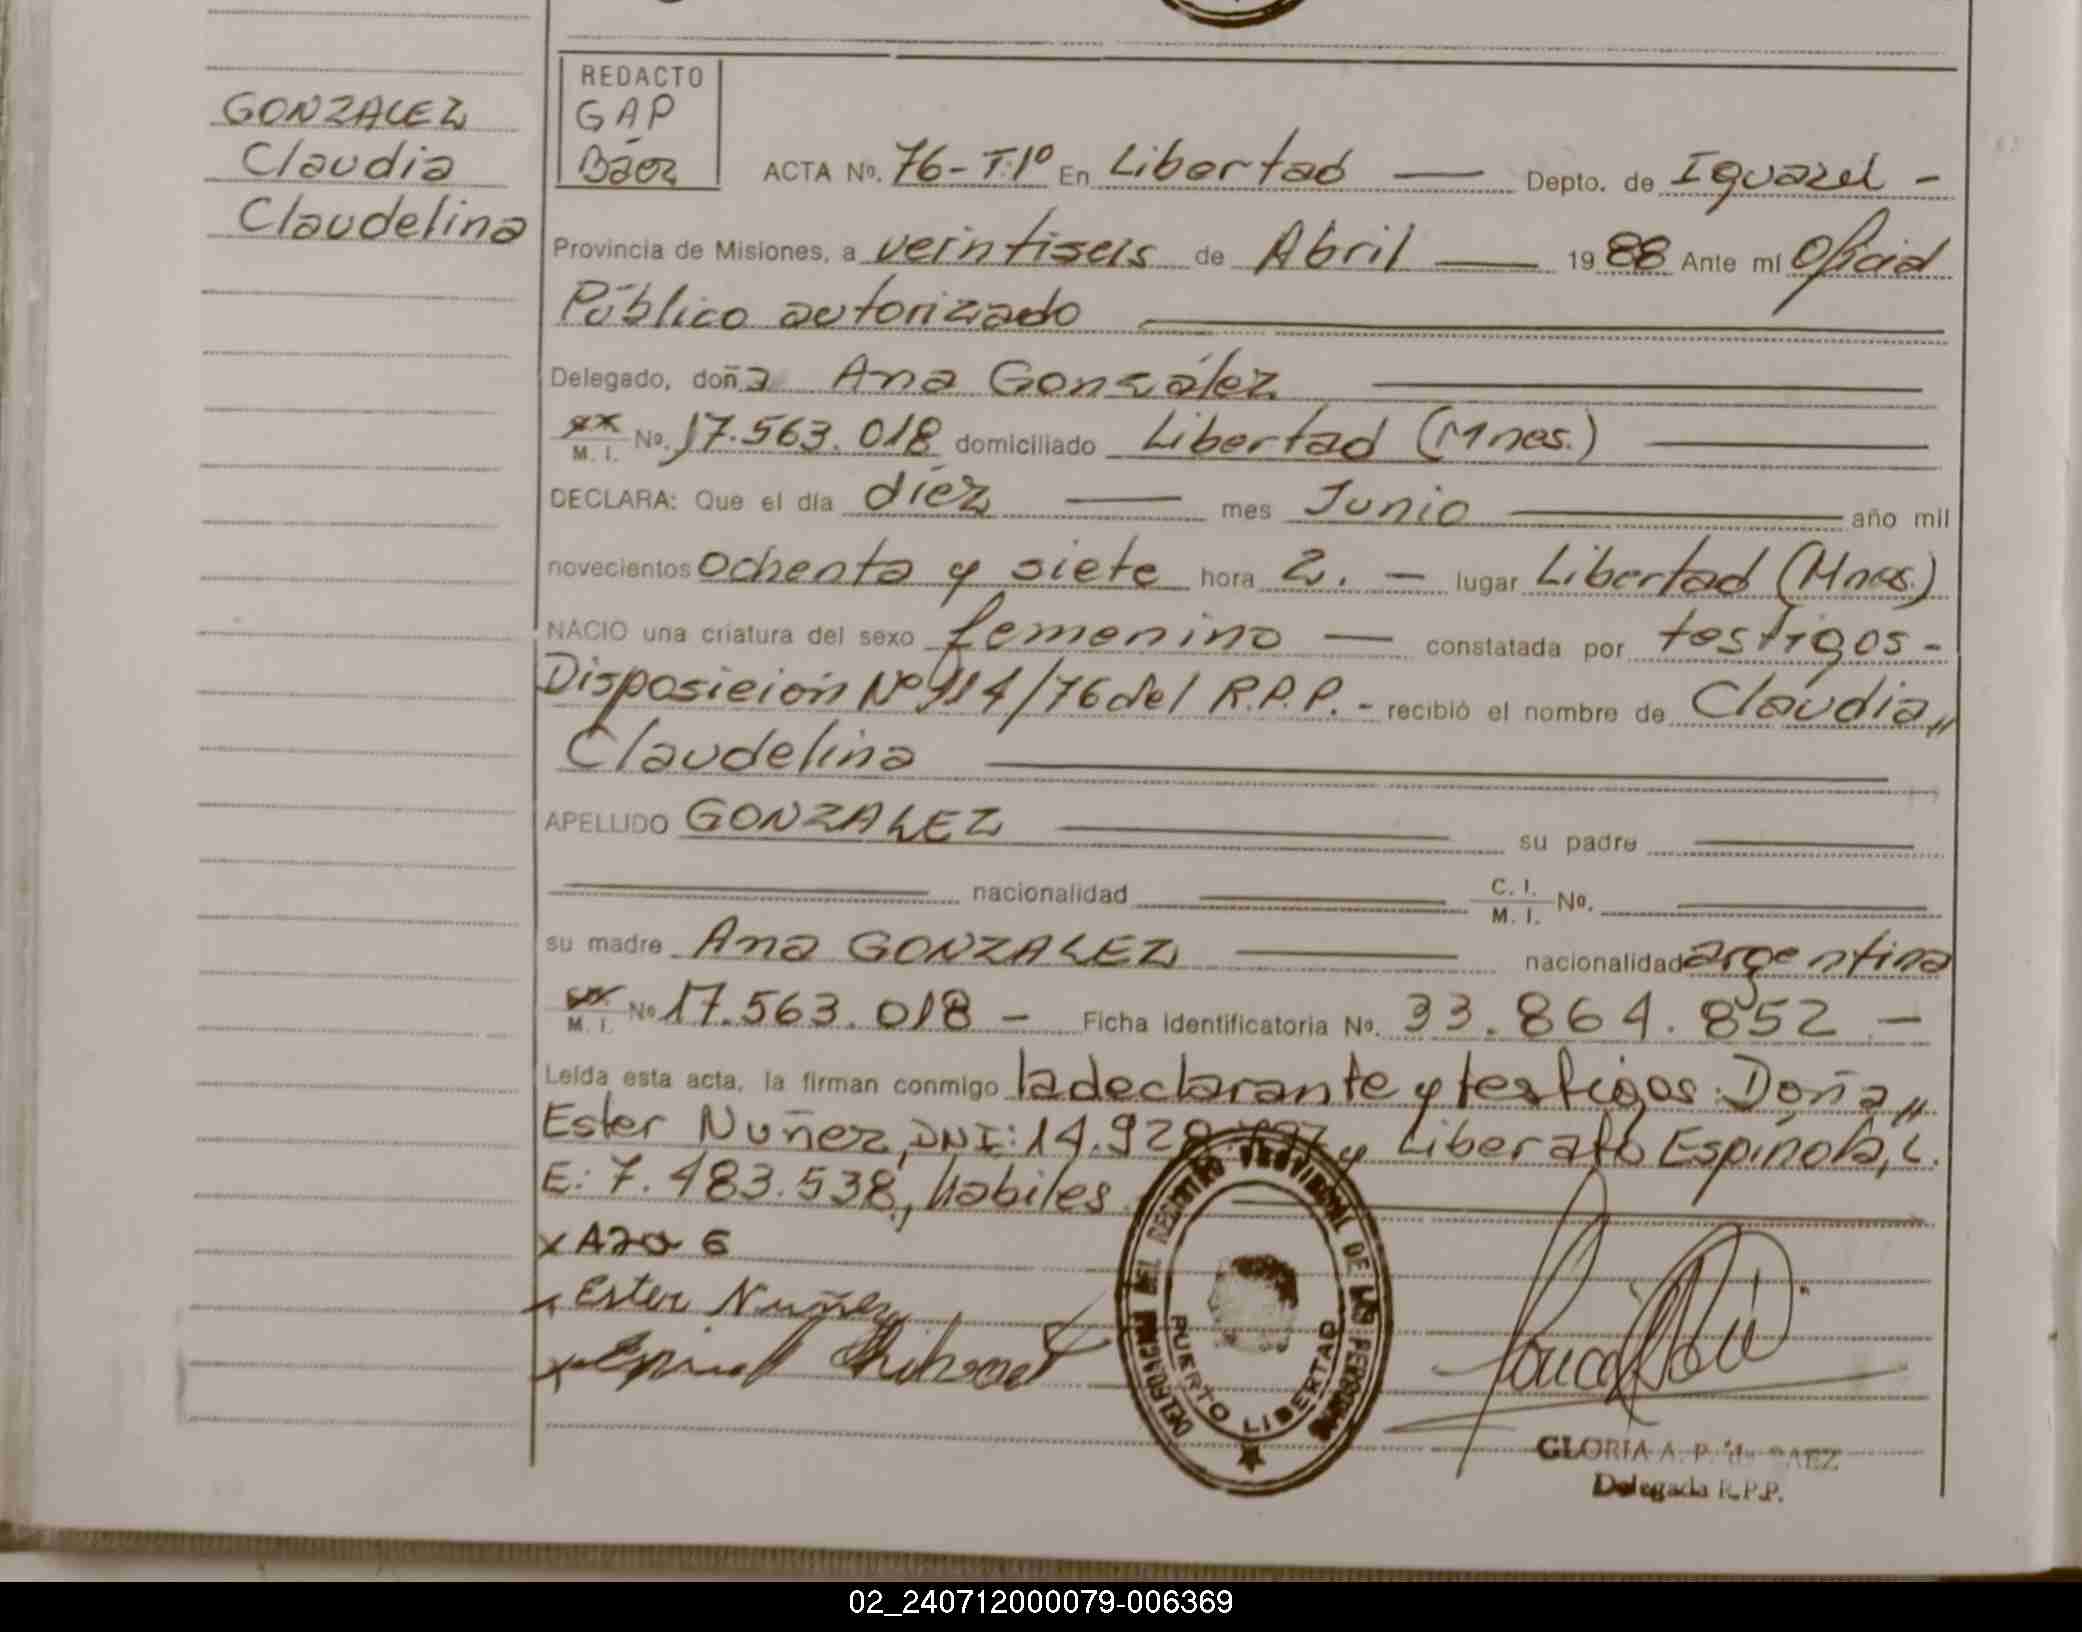 GONZALEZ
Claudia
Claudelina
REDACTO
GAP
Báez
ACTA Nº. 76-T.1º En Libertad — Depto. de Iguazú -
Provincia de Misiones, a veintiseis de Abril — 19 88 Ante mí Oficial
Público autorizado
Delegado, doña Ana González
M. I. No. 17.563.018 domiciliado Libertad (Mnes.)
DECLARA: Que el día diéz — mes Junio — año mil
novecientos ochenta y siete hora 2. - lugar Libertad (Mnes.)
NACIO una criatura del sexo femenino — constatada por testigos -
Disposición Nº 914/76 del R.P.P. - recibió el nombre de Claudia,,
Claudelina
APELLIDO GONZALEZ — su padre —
— nacionalidad — C. I. M. I. No. —
su madre Ana GONZALEZ — nacionalidad argentina
M. I. No 17.563.018 - Ficha Identificatoria No. 33.864.852 -
Leída esta acta, la firman conmigo la declarante y testigos: Doña,,
Ester Nuñez, DNI: 14.92 y Liberato Espínola, L.
E: 7.483.538, hábiles
x Ana G
x Ester Nuñez
x
DELEGACION DEL REGISTRO PROVINCIAL DE LAS PERSONAS
PUERTO LIBERTAD
GLORIA A. P. de BAEZ
Delegada R.P.P.
02_240712000079-006369